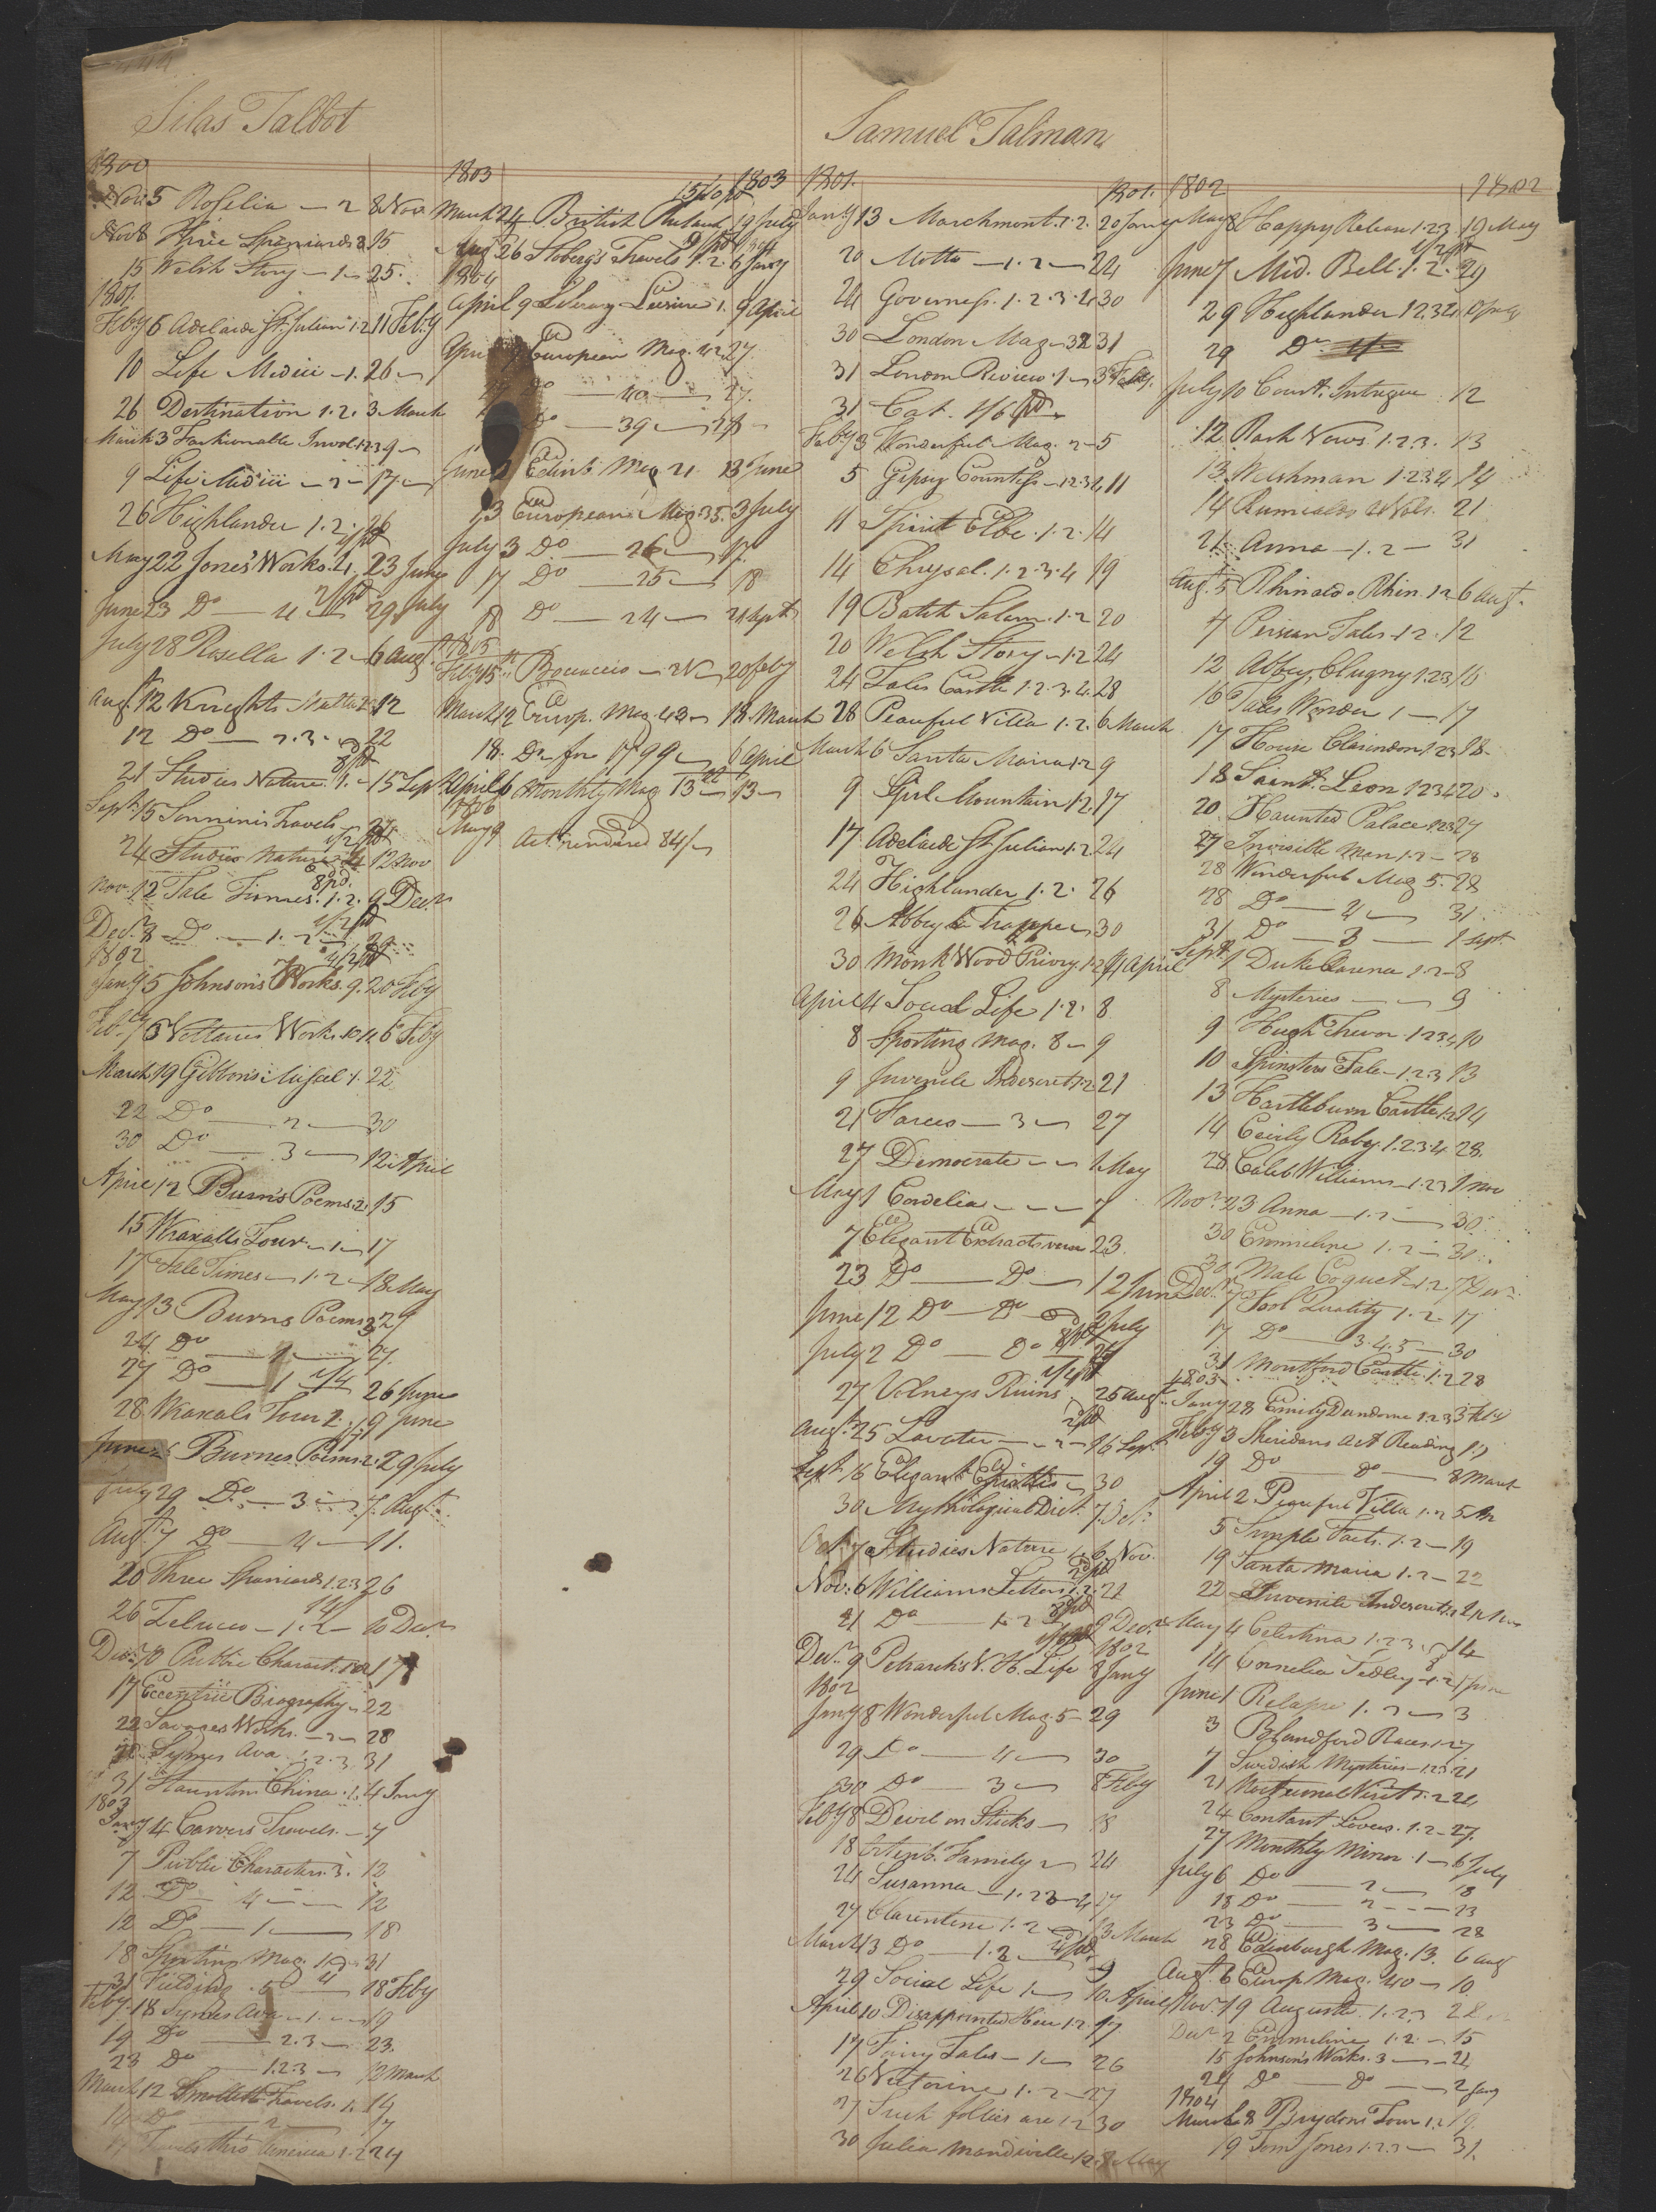 Silas Talbot
1800
Nov. 5 Rosellia — 2 8 Nov.
Nov 8 Three Spaniards 3 15
15 Welsh Story — 1 — 25
1801
Feby 6 Adelaide St. Julian 1.2 11 Feby
10 Life Medici — 1. 26 —
26 Destination 1.2. 3 March
March 3 Fashionable Invol. 1.2.3 9 —
9 Life Medici — 2 — 17 —
26 Highlander 1.2. 26
May 22 Jones' Works. 4. 23 June
June 23 Do — 4 29 July
July 28 Rosella 1.2 — 6 Augt
Augt 12 Knights Malta 12
12 Do — 2.3. — 22
21 Studies Nature. 1. — 15 Sept.
Sept. 15 Sonninis Travels —
24 Studies Nature 12 Nov
Nov. 12 Tale Times. 1.2. 9 Decr
Decr. 8 Do — 1. 2 —
1802
Jany 5 Johnson's Works. 9. 20 Feby
Feby Voltaires Works 6 Feby
March 19 Gibbon's Miscel. 1. 22
22 Do — 2 — 30
30 Do — 3 — 12 April
April 12 Burn's Poems. 2. 15
15 Wraxalls Tour — 1 — 17
17 Tale Times — 1.2 — 18 May
May 13 Burns Poems 2
24 Do — 27
27 Do — 1 1/4 26 June
28 Wraxals Tour 2. 19 June
June Burnes Poems 2. 29 July
July 29 Do — 3 — 7 Augt
Augt. 7 Do — 4 — 11.
20 Three Spaniards 1.2.3 26
26 Zelucco — 1.2 — 10 Decr
Decr 10 Public Charact. 17
17 Eccentric Biography — 22
22 Savages Works. — 2 — 28
Symes Ava 1.2.3. 31
31 Staunton China. 1. 4 Jany
1803
Jany 4 Carvers Travels — 7
7 Public Characters. 3. 12
12 Do 4 — 12
12 Do — 1 — 18
18 Sporting Mag. 31
31 Fielding . 5 18 Feby
Feby. 18 Symes Ava — 1. — 19
19 Do — 2.3 — 23.
23 Do — 1.2.3 — 12 March
March 12 Smollett Travels. 1. 14
14 Do — 2 — 17
17 Travels thro America 1.2 24
1803 1803
March 24 British 19 July
Aug 26 Stoberg's Travels 1.2. 6 Jany
1804
April 9 Literary Leisure 1. 9 April
April 9 European Mag. 42 27.
27 Do — 40 — 27.
Do — 39 —
June 2 Edinb. Mag 21 13 June
13 European Mag. 35. 3 July
July 3 Do — 26 — 17
17 Do — 25 — 18
18 Do — 24 — Sept
1805
Feby 15 Bocaccio — 2 V — 20 feby
March 12 Europ. Mag. 43 — 18 March
18. Do for 1799 — 6 April
April 6 Monthly Mag. 13 — 13 —
1806
May 9 Act. rendered 84/ —
Samuel Talman
1801. 1801.
Jany 13 Marchmont. 1.2. 20 Jany
20 Motto — 1.2 — 24
24 Governess. 1.2.3.4 30
30 London Mag — 32 31
31 London Review. 1 — 3 Feby.
31 Cat. 1/6 pd.
Feby 3 Wonderful Mag. 2 — 5
5 Gipsy Countess — 1.2.3.4 11
11 Spirit Elbe. 1.2. 14
14 Chrysal. 1.2.3.4 19
19 Batch Salam. 1.2 20
20 Welch Story — 1.2 24
24 Tales Castle 1.2.3.4. 28
28 Peaceful Villa 1.2. 6 March
March 6 Santa Maria 1.2 9
9 Girl Mountain 1.2. 17
17. Adelaide St. Julian 1.2. 24
24 Highlander 1.2. 26
26 Abbey la Trappe — 30
30 Monk Wood Priory. 1.2 4 April
April 4 Social Life 1.2. 8
8 Sporting Mag. 8 — 9
9 Juvenile Indescret. 1.2. 21
21 Farces — 3 — 27
27 Democrate — — 1 May
May 1 Cordelia — — — 7
7 Elegant Extracts verse 23.
23 Do — Do — 12 June
June 12 Do — Do — 2 July
July 2 Do — Do
27 Volneys Ruins 25 Augt.
Augt. 25 Lavater — — 2 — 16 Sept.
Sept. 16 Elegant Epistles — 30
30 Mythological Dict. 7 Oct.
Oct. 7 Studies Nature 1. 6 Nov.
Nov: 6 Williams Letters 1.2. 21
21 Do — 1.2 9 Decr.
Decr. 9 Petrarch's V. H. Life 8 Jany 1802
1802
Jany 8 Wonderful Mag. 5 — 29
29 Do — 4 — 30
30 Do — 3 — 8 Feby
Feby 8 Devil on Sticks — 18
18 Ortenb. Family 2 — 24
24 Susanna — 1.2.3 — 4 17
27 Clarentine 1.2 — 13 March
March 13 Do — 1.2 —
29 Social Life 1 — 10 April
April 10 Disappointed Heir 1.2. 17
17 Fairy Tales — 1 — 26
26 Victorine 1.2 — 27
27 Such follies are 1.2 30
30 Julia Mandeville 1.2. 8 May
1802 1802
May 8 Happy Release 1.2.3. 19 May
June 7 Mid. Bell. 1.2. 29
29 Highlander 1.2.3.4 July
29 Do
July 10 Court. Intrigue 12
12 Rash Vows. 1.2.3. 13
13 Welshman 1.2.3.4 14
14 Rumialds 2 Vols. 21
21 Anna — 1.2 — 31
Augt. 5 Rhinaldo Rhin. 1.2 6 Augt.
7 Persian Tales. 1.2. 12
12 Abbey Clugny 1.2.3 16
16 Tales Wonder 1 — 17
17 House Clarendon 1.2.3 18
18 Saint. Leon 1.2.3.4 20.
20 Haunted Palace 1.2.3 27
27 Invisible Man 1.2 — 28
28 Wonderful Mag 5. 28
28 Do — 4 — 31
31 Do — 3 — 1 Sept.
Sept. 1 Duke Clarence 1.2 — 8
8 Mysteries — — 9
9 Hugh Trevor. 1.2.3.4 10
10 Spinsters Tale — 1.2.3 13
13 Hartleburn Castle 1.2 14
14 Cecily Raby. 1.2.3.4 28.
28 Caleb Williams — 1.2.3 1 Nov
Novr. 23 Anna — 1.2 — 30
30 Emmeline 1.2 — 31
30 Male Coquet — 1.2. 7 Decr
Decr. 7 Fool Quality 1.2. 17
17 Do — 3.4.5 — 30
31 Montford Castle. 1.2 28
1803
Jany 28 Emily Dundorne 1.2.3 3 Feby
Feby 3 Sheridans Art Reading 19
19 Do Do — 8 March
April 2 Peaceful Villa 1.2 5
5 Simple Facts. 1.2 — 19
19 Santa Maria 1.2 — 22
22 Juvenile Indescret.
May 4 Celestina 1.2.3. 14
14 Cornelia Sedley — 1.2 1 June
June 1 Relapse 1.2 — 3
3 Blandford Races 1.2 7
7 Swedish Mysteries — 1.2.3 21
21 Nocturnal Visit 1.2 24
24 Constant Lovers. 1.2 — 27.
27 Monthly Mirror. 1 — 6 July
July 6 Do — 2 — 18
18 Do — 2 — — 23
23 Do — 3 — 28
28 Edenburgh Mag. 13. 6 aug
Augt. 6 Europ. Mag. 40 — 10
Novr. 19 Augusta. 1.2.3 28
Decr 2 Emmeline 1.2. — 15
15 Johnson's Works. 3 — 24
24 Do — Do — 2 Jany
1804
March 8 Brydons Tour 1.2 19
19 Tom Jones 1.2.3 — 31.